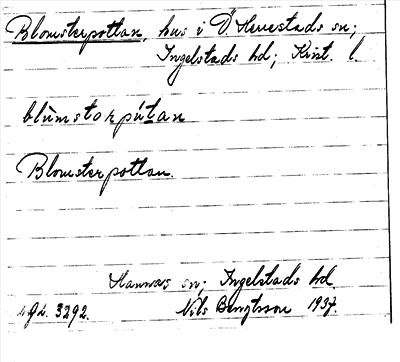 Blomsterpottan, hus i Ö. Herrestads sn;
Ingelstads hd; Krist. l.
blùmstorpútan
Blomsterpottan.
Hannas sn; Ingelstads hd.
3292. Nils Bengtsson 1937.